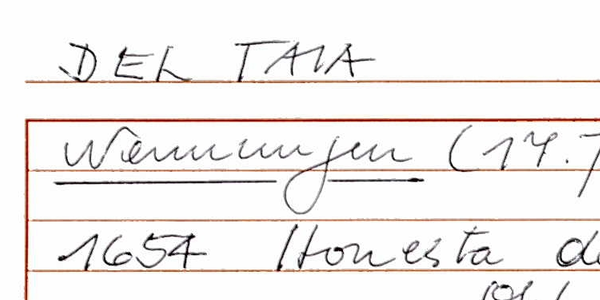 DEL TAIA
Wemmingen (17.7
1654 Honesta de